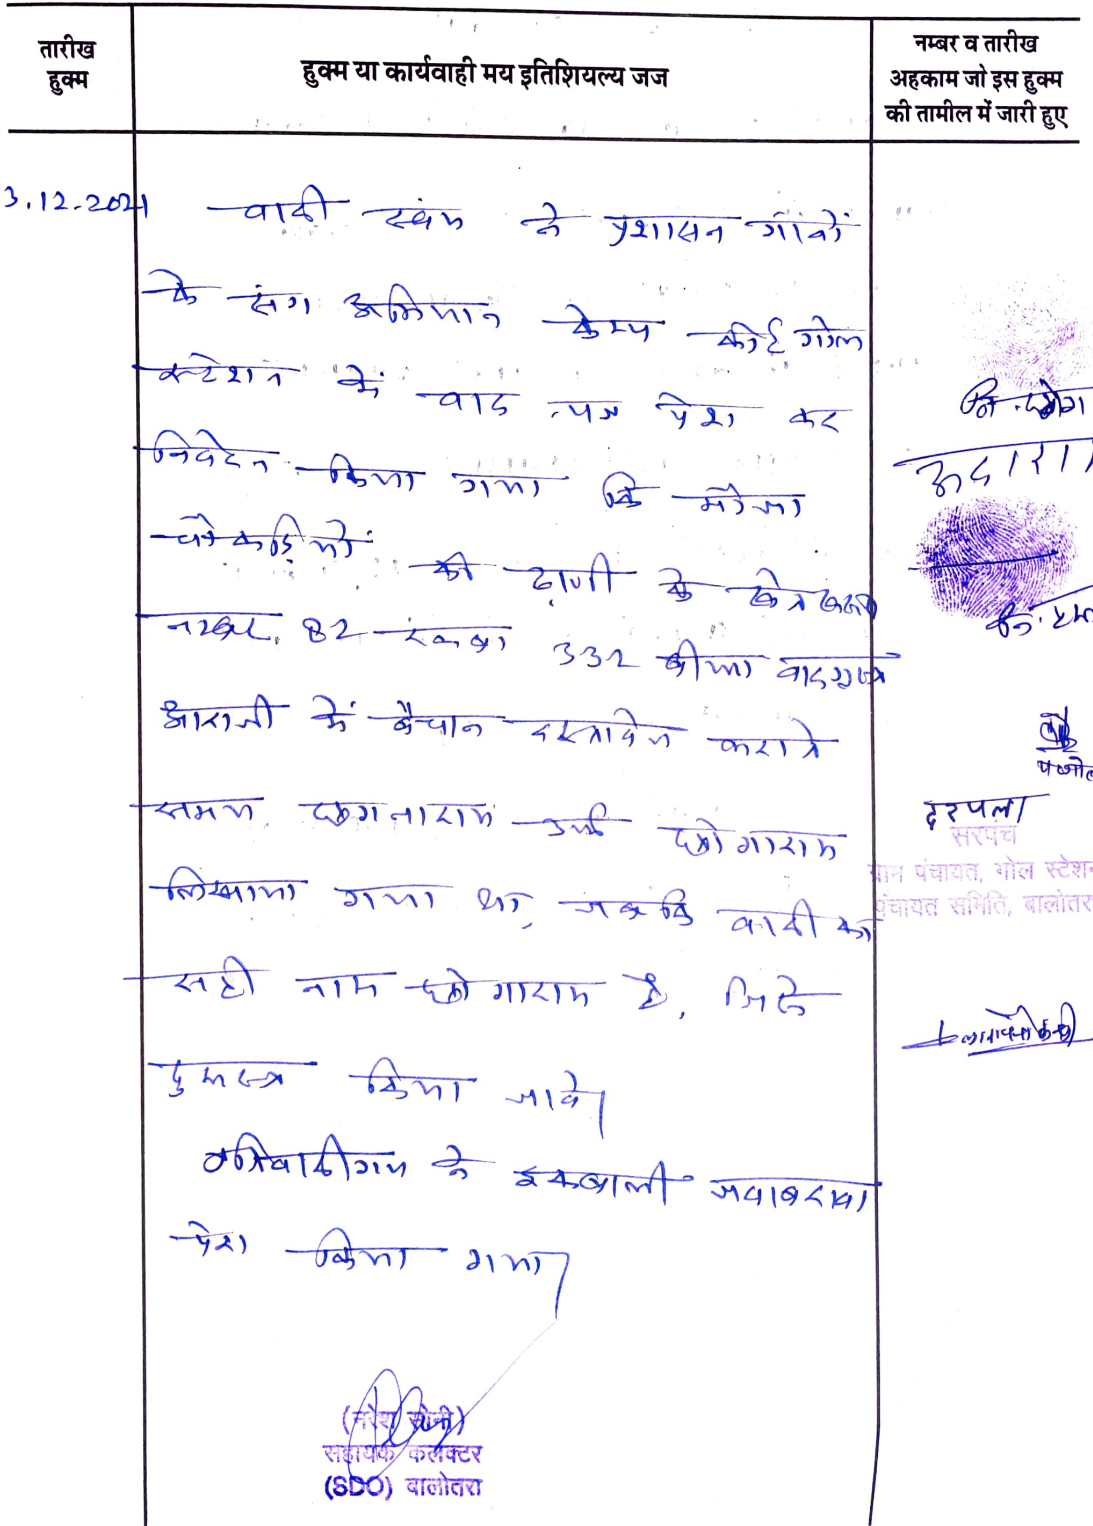 तारीख
हुक्म
हुक्म या कार्यवाही मय इतिशियल्य जज
नम्बर व तारीख
अहकाम जो इस हुक्म
की तामील में जारी हुए
3.12.2021 वादी स्वंय ने प्रशासन गांवों
के संग अभियान केम्प गोल
स्टेशन में वाद पत्र पेश कर
निवेदन किया गया कि मौजा
की ढाणी के खेत खसरा
नम्बर 82 रकबा 332 बीघा वादग्रस्त
आराजी में बैचान दस्तावेज कराते
समय छगनाराम उर्फ छोगाराम
लिखाया गया था, जबकि वादी का
सही नाम छोगाराम है, जिसे
दुरूस्त किया जावे।
प्रतिवादीगण ने इकबाली जवाबदावा
पेश किया गया।
(नरेश सोनी)
सहायक कलक्टर
(SDO) बालोतरा
सरपंच
ग्राम पंचायत, गोल स्टेशन
पंचायत समिति, बालोतरा